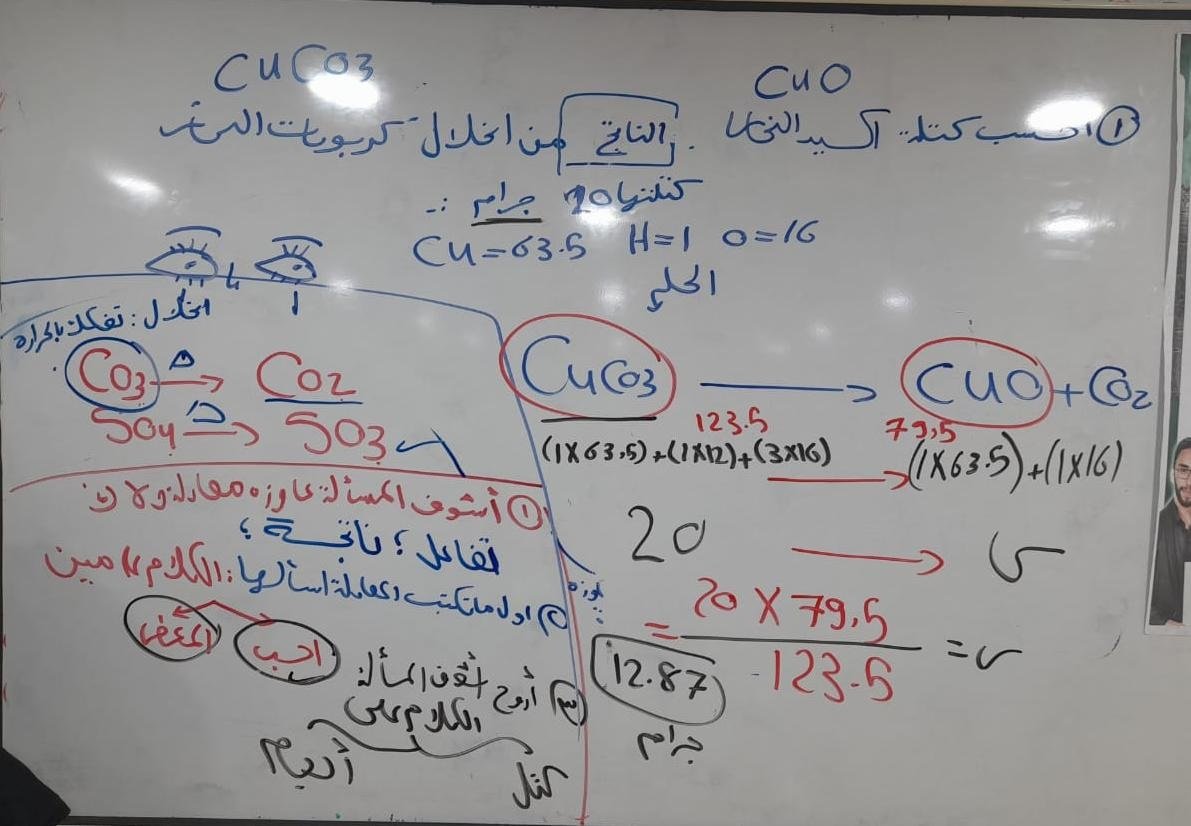 CuCO3
CuO
① احسب كتلة أكسيد النحاس الناتج من انحلال كربونات النحاس
كتلتها 20 جرام :-
Cu=63.5 H=1 O=16
الحل
انحلال : تفكك بالحرارة
CO3 Δ→ CO2
SO4 Δ→ SO3
① أشوف المسألة عاوزه معادلة ولا لا
تفاعل ؛ ناتجة ؛
② اول ما تكتب المعادلة اسألها : الكلام على مين
احسب المعطى
③ أروح أشوف المسألة
الكلام على
كتل أحجام
CuCO3 → CuO + CO2
123.5 79.5
(1x63.5)+(1x12)+(3x16) → (1x63.5)+(1x16)
20 → س
س = 20 x 79.5 / 123.5 = 12.87
جرام